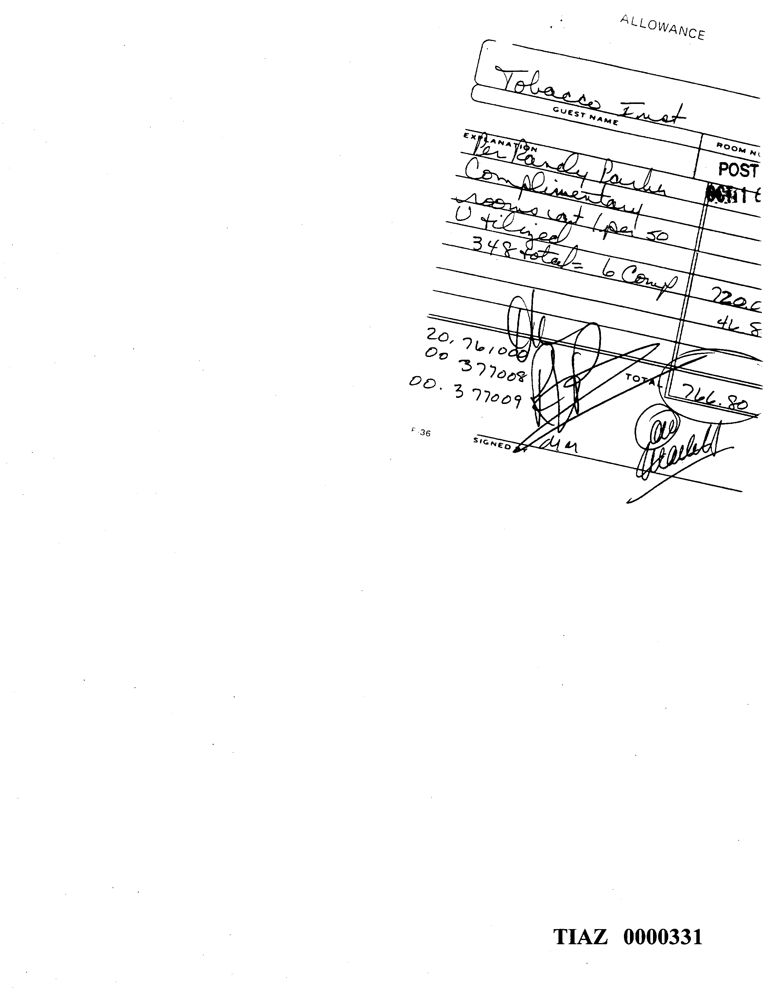 ALLOWANCE
Tobacco Inst
GUEST NAME
ROOM N
EXPLANATION
POST
Per Randy Parker
OCT 11
Complimentary
rooms cost 1 per 50
Utilized
348 total = 6 Comp
720.0
46.8
20. 761000
00 377008
00. 377009
TOTAL
766.80
F-36
SIGNED
TIAZ 0000331